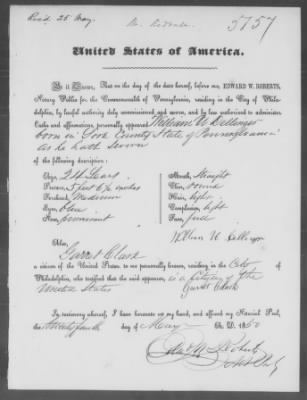 Recd. 25 May.
5757
United States of America.
Be it Known, That on the day of the date hereof, before me, EDWARD W. ROBERTS,
Notary Public for the Commonwealth of Pennsylvania, residing in the City of Phila-
delphia, by lawful authority duly commissioned and sworn, and by law authorized to administer
Oaths and affirmations, personally appeared William U. Dellinger
born in York County State of Pennsylvania
as he hath sworn
of the following description:
Age, 24 Years
Stature, 5 feet 6 1/2 inches
Forehead, Medium
Eyes,
Nose, prominent
Mouth, Straight
Chin, round
Hair, light
Complexion, light
Face, full
William U Dellinger
Also,
Garret Clark
a citizen of the United States to me personally known, residing in the City of
Philadelphia, who testified that the said appearer, is a Citizen of the
United States
Garret Clark
In testimony whereof, I have hereunto set my hand, and affixed my Notarial Seal,
the twenty fourth day of May A. D. 1850
Edw W Roberts